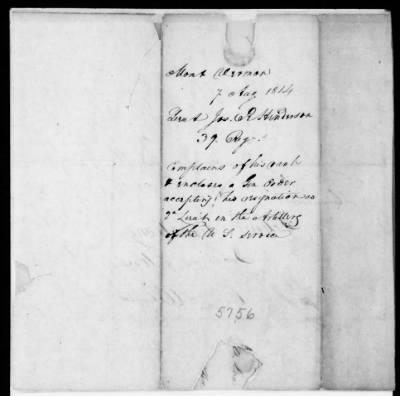 Mont Vernon
7 Aug 1814
Lieut Jas. R Henderson
39. Regt
Complains of his rank
& encloses a Gen Order
accepting his resignation as
2d Lieut in the Artillery
of the U S. service
5756